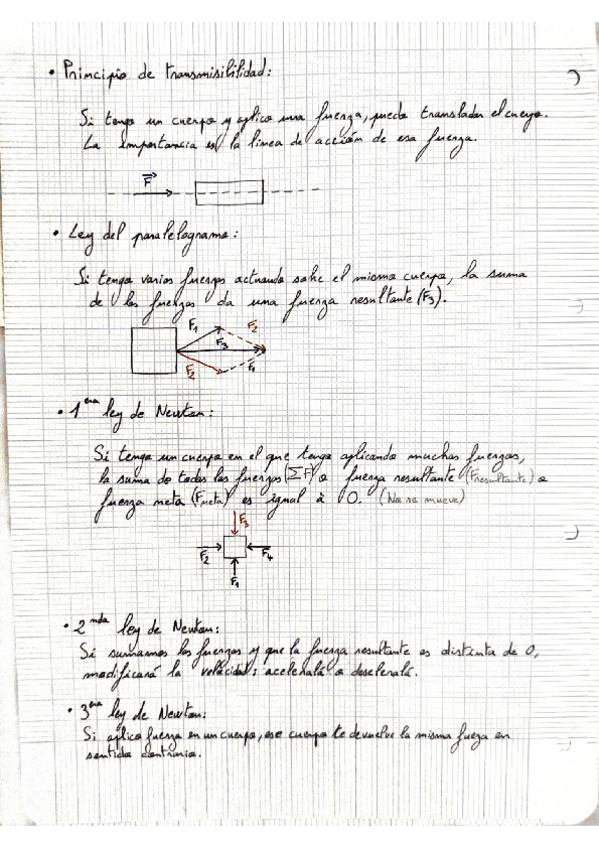 • Principio de transmisibilidad:
Si tengo un cuerpo y aplico una fuerza, puedo transladar el cuerpo.
La importancia es la linea de acción de esa fuerza.
F
• Ley del paralelogramo:
Si tengo varios fuerzas actuando sobre el mismo cuerpo, la suma
de las fuerzas da una fuerza resultante (F3).
F1 F2
F3
F2 F1
• 1era ley de Newton:
Si tengo un cuerpo en el que tengo aplicando muchas fuerzas,
la suma de todas las fuerzas (∑F) o fuerza resultante (Fresultante) o
fuerza neta (Fneta) es igual à 0. (No se mueve)
F3
F2 F4
F1
• 2nda ley de Newton:
Si sumamos las fuerzas y que la fuerza resultante es distinta de 0,
modificará la velocidad: acelerará o desacelerará.
• 3era ley de Newton:
Si aplico fuerza en un cuerpo, ese cuerpo te devuelve la misma fuerza en
sentido contrario.